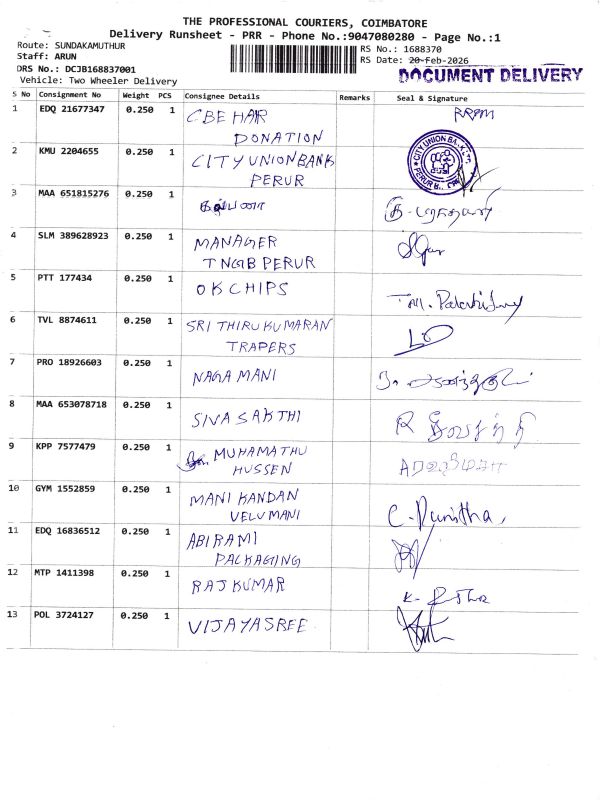 THE PROFESSIONAL COURIERS, COIMBATORE
Delivery Runsheet - PRR - Phone No.:9047080280 - Page No.:1
Route: SUNDAKAMUTHUR
RS No.: 1688370
Staff: ARUN
RS Date: 20-Feb-2026
DRS No.: DCJB168837001
DOCUMENT DELIVERY
Vehicle: Two Wheeler Delivery
S No Consignment No Weight PCS Consignee Details Remarks Seal & Signature
1 EDQ 21677347 0.250 1 CBE HAIR
DONATION
2 KMU 2204655 0.250 1 CITY UNION BANK
PERUR
3 MAA 651815276 0.250 1
4 SLM 389628923 0.250 1 MANAGER
TNGB PERUR
5 PTT 177434 0.250 1 OK CHIPS
6 TVL 8874611 0.250 1 SRI THIRU KUMARAN
TRAPERS
7 PRO 18926603 0.250 1 NAGAMANI
8 MAA 653078718 0.250 1 SIVA SAKTHI
9 KPP 7577479 0.250 1 MUHAMATHU
HUSSEN
10 GYM 1552859 0.250 1 MANI KANDAN
VELUMANI C. Punitha,
11 EDQ 16836512 0.250 1 ABIRAMI
PACKAGING
12 MTP 1411398 0.250 1 RAJ KUMAR
13 POL 3724127 0.250 1 VIJAYASREE